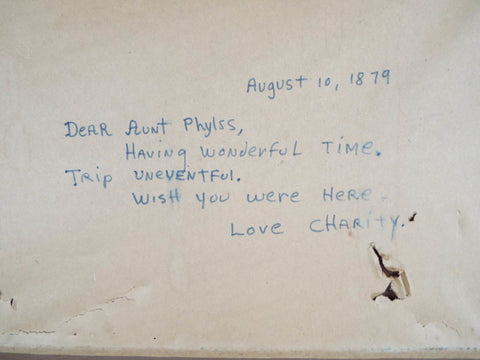 August 10, 1879
Dear Aunt Phylss,
Having wonderful time.
Trip uneventful.
Wish you were here.
Love Charity.